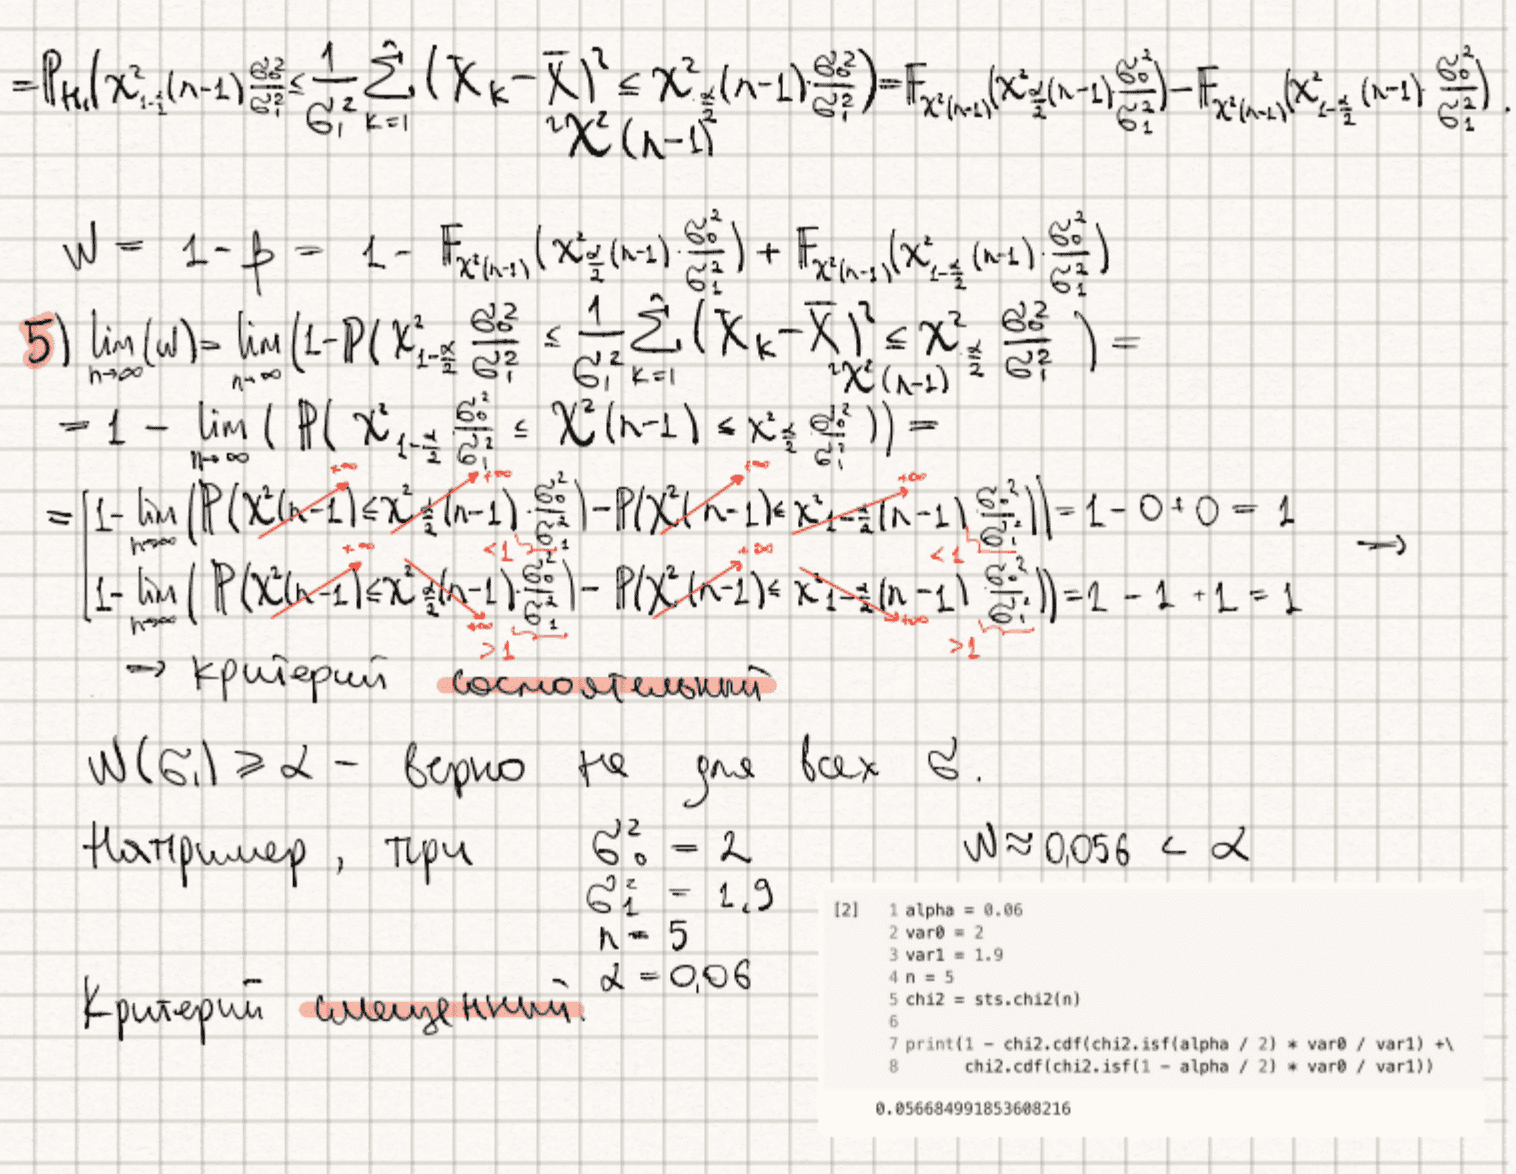 = P_{H_1}(χ²_{1-α/2}(n-1) σ₀²/σ₁² ≤ 1/σ₁² Σ_{k=1}^{n} (X_k - X̄)² ≤ χ²_{α/2}(n-1)·σ₀²/σ₁²) = F_{χ²(n-1)}(χ²_{α/2}(n-1) σ₀²/σ₁²) - F_{χ²(n-1)}(χ²_{1-α/2}(n-1)· σ₀²/σ₁²).
~χ²(n-1)
W = 1 - β = 1 - F_{χ²(n-1)}(χ²_{α/2}(n-1)·σ₀²/σ₁²) + F_{χ²(n-1)}(χ²_{1-α/2}(n-1)·σ₀²/σ₁²)
5) lim_{n→∞}(W) = lim_{n→∞}(1-P(χ²_{1-α/2} σ₀²/σ₁² ≤ 1/σ₁² Σ_{k=1}^{n} (X_k - X̄)² ≤ χ²_{α/2} σ₀²/σ₁²) =
~χ²(n-1)
= 1 - lim_{n→∞}(P(χ²_{1-α/2} σ₀²/σ₁² ≤ χ²(n-1) ≤ χ²_{α/2} σ₀²/σ₁²)) =
+∞ +∞ +∞ +∞
= [1- lim_{n→∞}(P(χ²(n-1) ≤ χ²_{α/2}(n-1)·σ₀²/σ₁²) - P(χ²(n-1) ≤ χ²_{1-α/2}(n-1) σ₀²/σ₁²)) = 1 - 0 + 0 = 1 →
<1 <1
+∞ +∞
[1- lim_{n→∞}(P(χ²(n-1) ≤ χ²_{α/2}(n-1)·σ₀²/σ₁²) - P(χ²(n-1) ≤ χ²_{1-α/2}(n-1) σ₀²/σ₁²)) = 1 - 1 + 1 = 1
+∞ +∞
>1 >1
→ критерий состоятельный
W(σ₁) ≥ α - верно не для всех σ.
Например, при σ₀² = 2 W ≈ 0,056 < α
σ₁² = 1,9
n = 5
α = 0,06
Критерий смещенный.
[2] 1 alpha = 0.06
2 var0 = 2
3 var1 = 1.9
4 n = 5
5 chi2 = sts.chi2(n)
6
7 print(1 - chi2.cdf(chi2.isf(alpha / 2) * var0 / var1) +\
8 chi2.cdf(chi2.isf(1 - alpha / 2) * var0 / var1))
0.056684991853608216